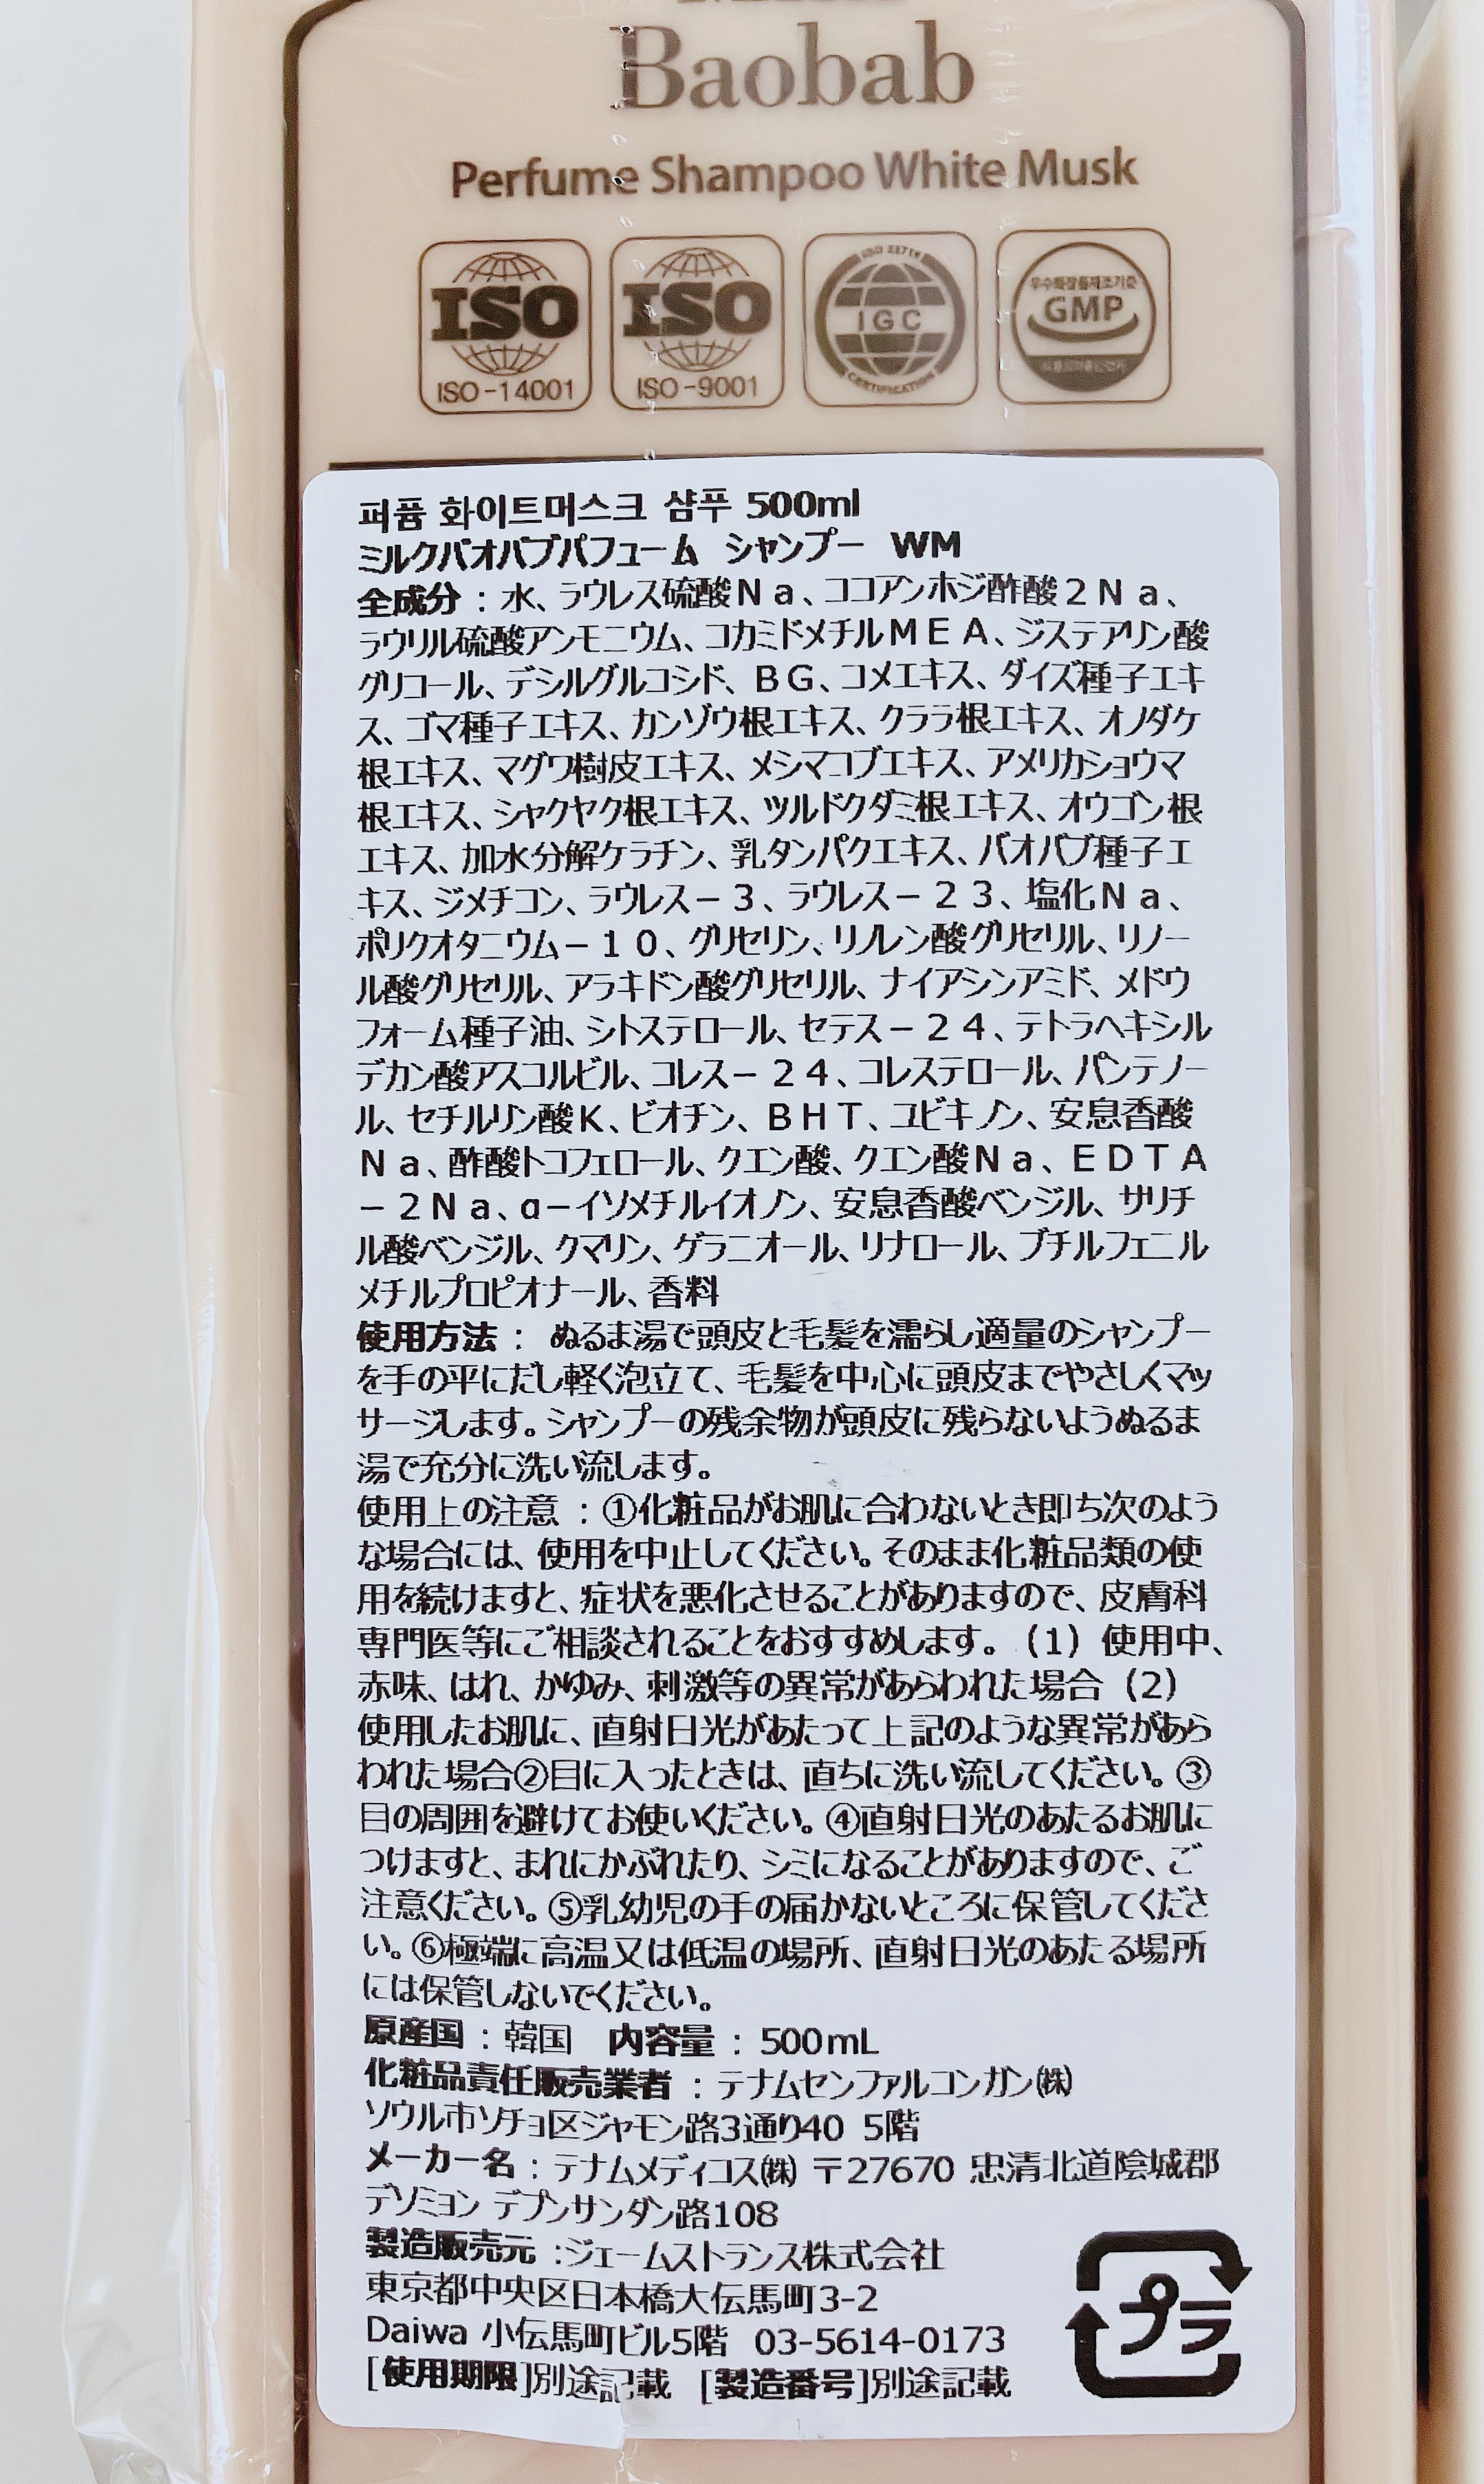 Baobab
Perfume Shampoo White Musk
ISO
ISO-14001
ISO
ISO-9001
IGC
CERTIFICATION
우수화장품제조기준
GMP
퍼퓸 화이트머스크 샴푸 500ml
ミルクバオバブパフューム シャンプー WM
全成分：水、ラウレス硫酸Ｎａ、ココアンホジ酢酸２Ｎａ、
ラウリル硫酸アンモニウム、コカミドメチルＭＥＡ、ジステアリン酸
グリコール、デシルグルコシド、ＢＧ、コメエキス、ダイズ種子エキ
ス、ゴマ種子エキス、カンゾウ根エキス、クララ根エキス、オノダケ
根エキス、マグワ樹皮エキス、メシマコブエキス、アメリカショウマ
根エキス、シャクヤク根エキス、ツルドクダミ根エキス、オウゴン根
エキス、加水分解ケラチン、乳タンパクエキス、バオバブ種子エ
キス、ジメチコン、ラウレス－３、ラウレス－２３、塩化Ｎａ、
ポリクオタニウム－１０、グリセリン、リノレン酸グリセリル、リノー
ル酸グリセリル、アラキドン酸グリセリル、ナイアシンアミド、メドウ
フォーム種子油、シトステロール、セテス－２４、テトラヘキシル
デカン酸アスコルビル、コレス－２４、コレステロール、パンテノー
ル、セチルリン酸Ｋ、ビオチン、ＢＨＴ、ユビキノン、安息香酸
Ｎａ、酢酸トコフェロール、クエン酸、クエン酸Ｎａ、ＥＤＴＡ
－２Ｎａ、α－イソメチルイオノン、安息香酸ベンジル、サリチ
ル酸ベンジル、クマリン、ゲラニオール、リナロール、ブチルフェニル
メチルプロピオナール、香料
使用方法： ぬるま湯で頭皮と毛髪を濡らし適量のシャンプー
を手の平にだし軽く泡立て、毛髪を中心に頭皮までやさしくマッ
サージします。シャンプーの残余物が頭皮に残らないようぬるま
湯で充分に洗い流します。
使用上の注意：①化粧品がお肌に合わないとき即ち次のよう
な場合には、使用を中止してください。そのまま化粧品類の使
用を続けますと、症状を悪化させることがありますので、皮膚科
専門医等にご相談されることをおすすめします。（1）使用中、
赤味、はれ、かゆみ、刺激等の異常があらわれた場合（2）
使用したお肌に、直射日光があたって上記のような異常があら
われた場合②目に入ったときは、直ちに洗い流してください。③
目の周囲を避けてお使いください。④直射日光のあたるお肌に
つけますと、まれにかぶれたり、シミになることがありますので、ご
注意ください。⑤乳幼児の手の届かないところに保管してくださ
い。⑥極端に高温又は低温の場所、直射日光のあたる場所
には保管しないでください。
原産国：韓国 内容量：500mL
化粧品責任販売業者：テナムセンファルコンガン㈱
ソウル市ソチョ区ジャモン路3通り40 5階
メーカー名：テナムメディコス㈱ 〒27670 忠清北道陰城郡
デソミョン デプンサンダン路108
製造販売元：ジェームストランス株式会社
東京都中央区日本橋大伝馬町3-2
Daiwa 小伝馬町ビル5階 03-5614-0173
[使用期限]別途記載 [製造番号]別途記載
プラ